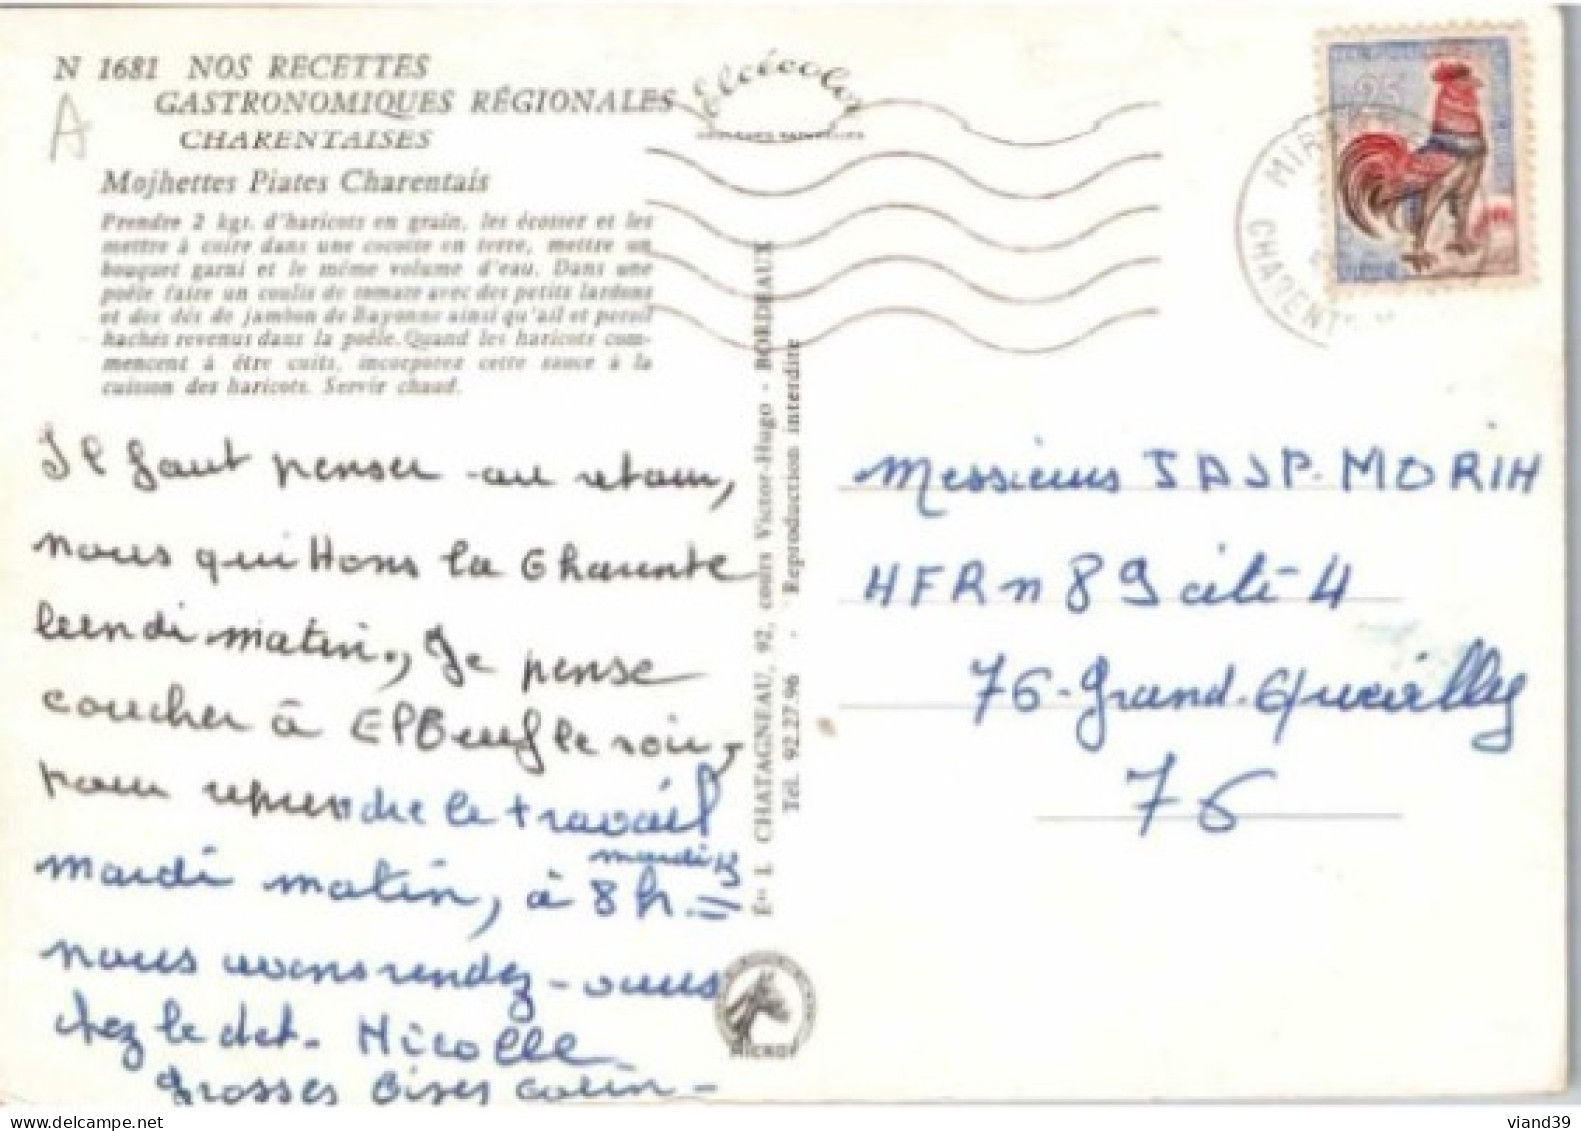 N 1681 NOS RECETTES
GASTRONOMIQUES RÉGIONALES
CHARENTAISES
A
Mojhettes Piates Charentais
Prendre 2 kgs. d'haricots en grain, les écosser et les
mettre à cuire dans une cocotte en terre, mettre un
bouquet garni et le même volume d'eau. Dans une
poêle faire un coulis de tomate avec des petits lardons
et des dés de jambon de Bayonne ainsi qu'ail et persil
hachés revenus dans la poêle. Quand les haricots com-
mencent à être cuits, incorporez cette sauce à la
cuisson des haricots. Servir chaud.
Il faut penser au retour,
nous quittons la Charente
lundi matin, Je pense
coucher à Elbeuf le soir,
pour reprendre le travail
mardi matin, à 8h =
mardi 15
nous avons rendez-vous
chez le doct. Nicolle
Grosses bises
Elcécolor
Éts L CHATAGNEAU, 92, cours Victor-Hugo - BORDEAUX
Tél. 92.27.96 - Reproduction interdite
25
MIR
CHARENT
Messieurs JAJP. MORIN
HFR n 89 cité 4
76-Grand-Quevilly
76
viand39